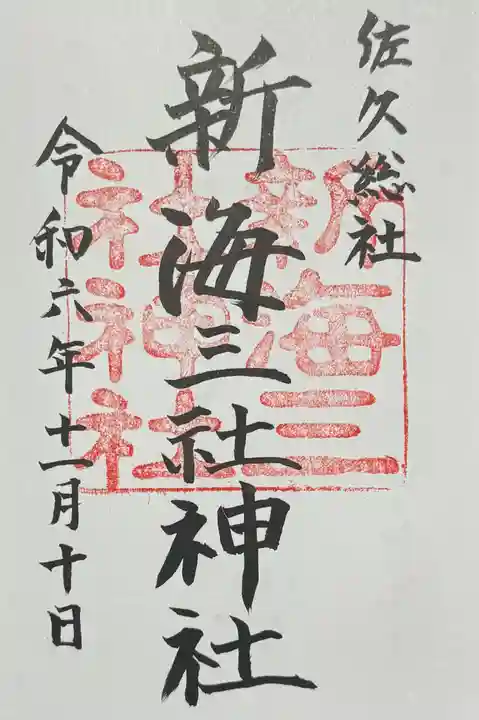 佐久総社
新海三社神社
令和六年十一月十日
新海三社神社